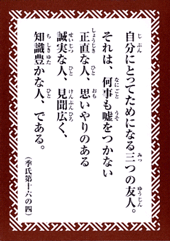 自分にとってためになる三つの友人。
それは、何事も嘘をつかない
正直な人、思いやりのある
誠実な人、見聞広く、
知識豊かな人、である。
(季氏第十六の四)